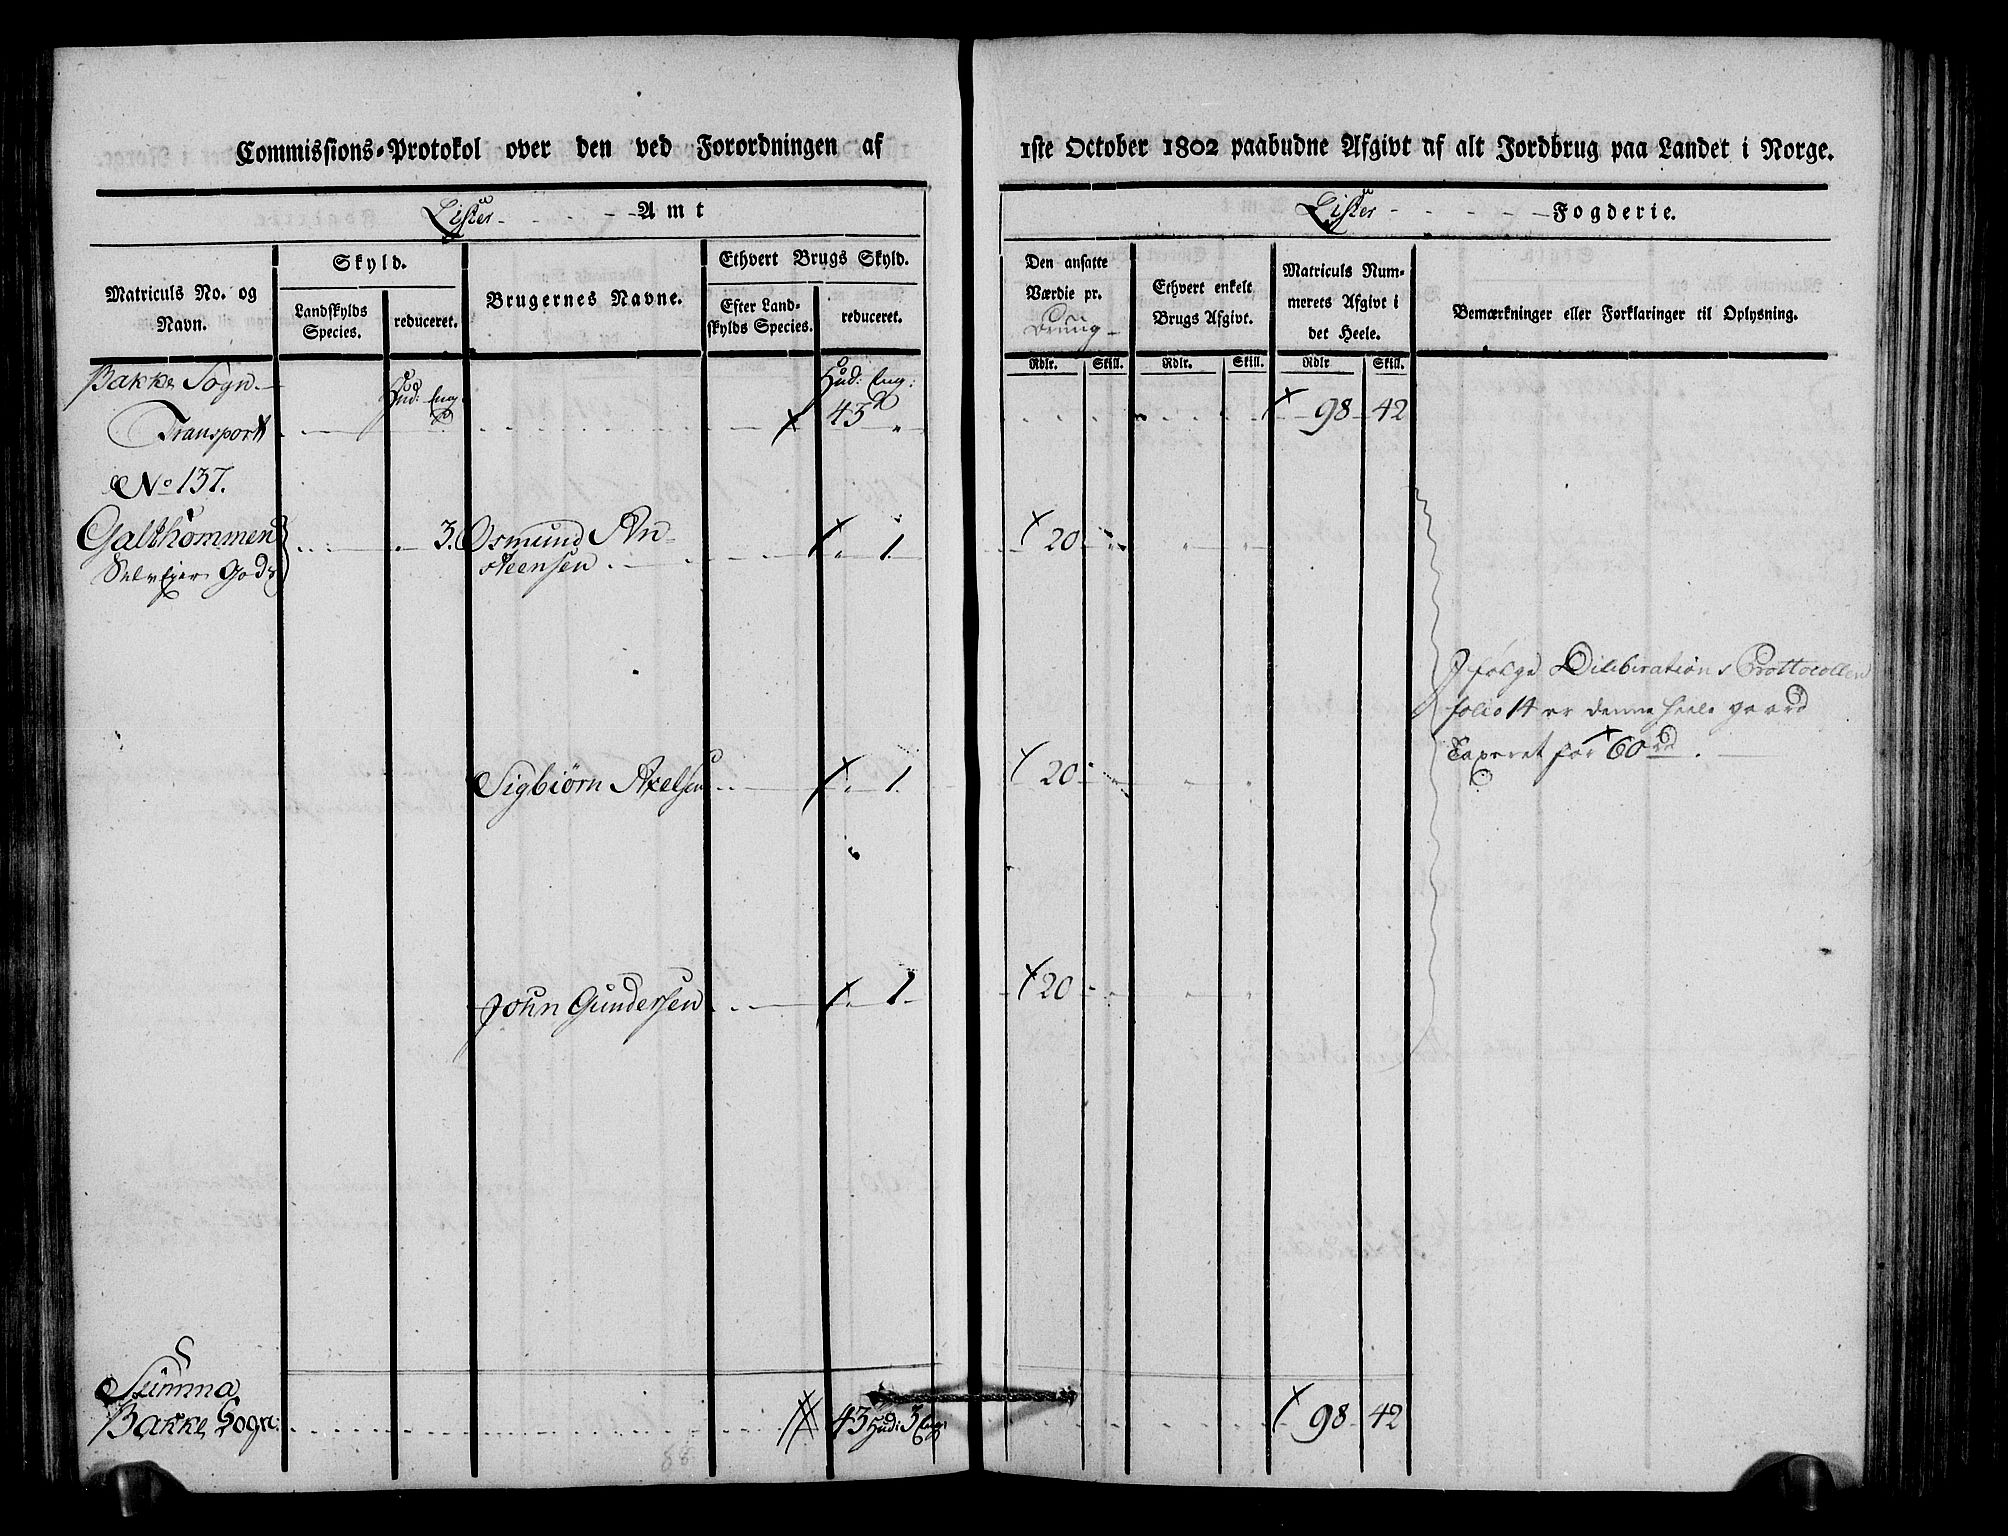 Commissions-Protokol over den ved Forordningen af 1ste October 1802 paabudne Afgivt af alt Jordbrug paa Landet i Norge.
Lister - - - - Amt
Lister - - - - Fogderie.
Matriculs No. og Navn.
Skyld.
Landskylds Species.
reduceret.
Brugernes Navne.
Ethvert Brugs Skyld.
Efter Landskylds Species.
reduceret.
Den ansatte Værdie pr. Brug
Ethvert enkelt Brugs Afgivt.
Matriculs Nummerets Afgivt i det Heele.
Bemærkninger eller Forklaringer til Oplysning.
Rdlr. Skill. Rdlr. Skill. Rdlr Skill.
Bakke Sogn.
Hud: Eng: Hud: Eng:
Transport 43 " 98 42
No 137.
Galthommen 3. Osmund An- 1 20
Selvejer Gods steensen
I følge Deliberations Prottocollen
folio 14 er denne heele gaard
Taxeret for 60 rd.
Sigbiørn Axelsen 1 20
John Gundersen 1 20
Summa
Bakke Sogn: 43 Hud: 3 Eng: 98 42